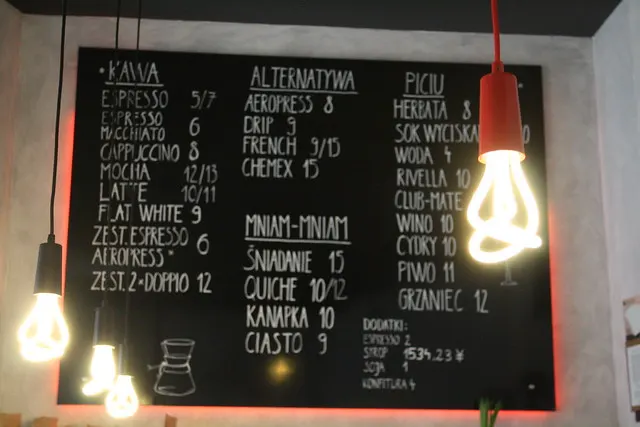 KAWA
ESPRESSO 5/7
ESPRESSO
MACCHIATO 6
CAPPUCCINO 8
MOCHA 12/13
LATTE 10/11
FLAT WHITE 9
ZEST. ESPRESSO
AEROPRESS 6
ZEST. 2×DOPPIO 12
ALTERNATYWA
AEROPRESS 8
DRIP 9
FRENCH 9/15
CHEMEX 15
MNIAM-MNIAM
ŚNIADANIE 15
QUICHE 10/12
KANAPKA 10
CIASTO 9
PICIU
HERBATA 8
SOK
WODA 4
RIVELLA 10
CLUB-MATE
WINO 10
CYDRY 10
PIWO 11
GRZANIEC 12
DODATKI:
ESPRESSO 2
SYROP 1534.23 ¥
SOJA 1
KONFITURA 4